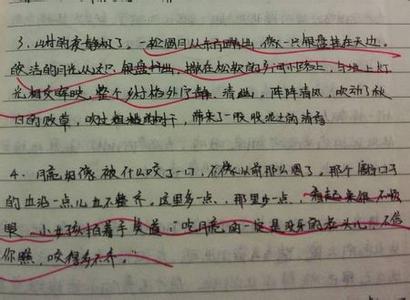 3、山村的夜静极了。一轮圆月从东方升出，像一只银盘挂在天边。
皎洁的月光从这只银盘抖出，撒在松软的乡间小路上，与地上灯
光相交晖映，整个乡村格外宁静、清幽。阵阵清风，吹动了秋
日的败草，吹过粗糙的树干，带来了一股股泥土的清香
4、月亮好像被什么咬了一口，不像以前那么圆了。那个断口子
的边沿一点儿也不整齐，这里多一点、那里少一点，看起来很不顺
眼。一小女孩拍着手笑道：“吃月亮的一定是没牙的老头儿，不信
你瞧，咬得多不齐。”